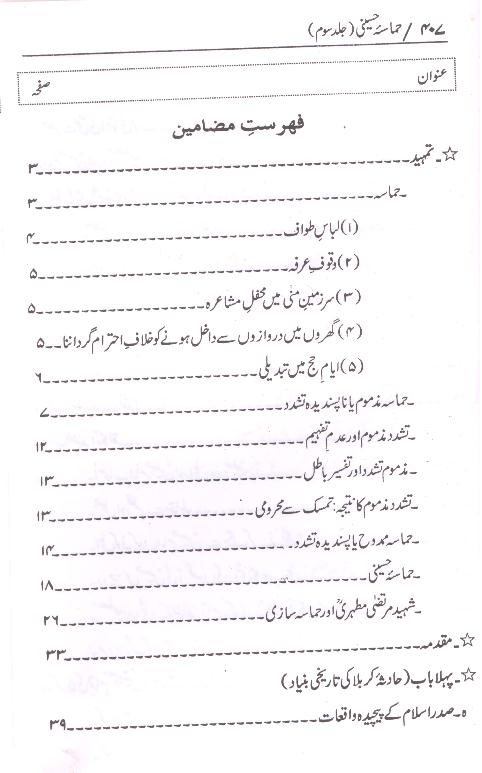 ۴۰۷ / حماسۂ حسینی (جلد سوم)
عنوان صفحہ
فہرستِ مضامین
☆۔ تمہید ۳
۔حماسہ ۳
(۱) لباسِ طواف ۴
(۲) وقوفِ عرفہ ۵
(۳) سرزمینِ منیٰ میں محفلِ مشاعرہ ۵
(۴) گھروں میں دروازوں سے داخل ہونے کو خلافِ احترام گرداننا ۵
(۵) ایامِ حج میں تبدیلی ۶
۔حماسہ مذموم یا ناپسندیدہ تشدد ۷
۔تشدد مذموم اور عدم تفہیم ۱۲
۔مذموم تشدد اور تفسیر باطل ۱۳
۔تشدد مذموم کا نتیجہ: تمسک سے محرومی ۱۳
۔حماسہ ممدوح یا پسندیدہ تشدد ۱۴
۔حماسۂ حسینی ۱۸
۔شہید مرتضیٰ مطہریؒ اور حماسہ سازی ۲۶
☆۔ مقدمہ ۳۳
☆۔ پہلا باب (حادثۂ کربلا کی تاریخی بنیاد)
ہ صدر اسلام کے پیچیدہ واقعات ۳۹